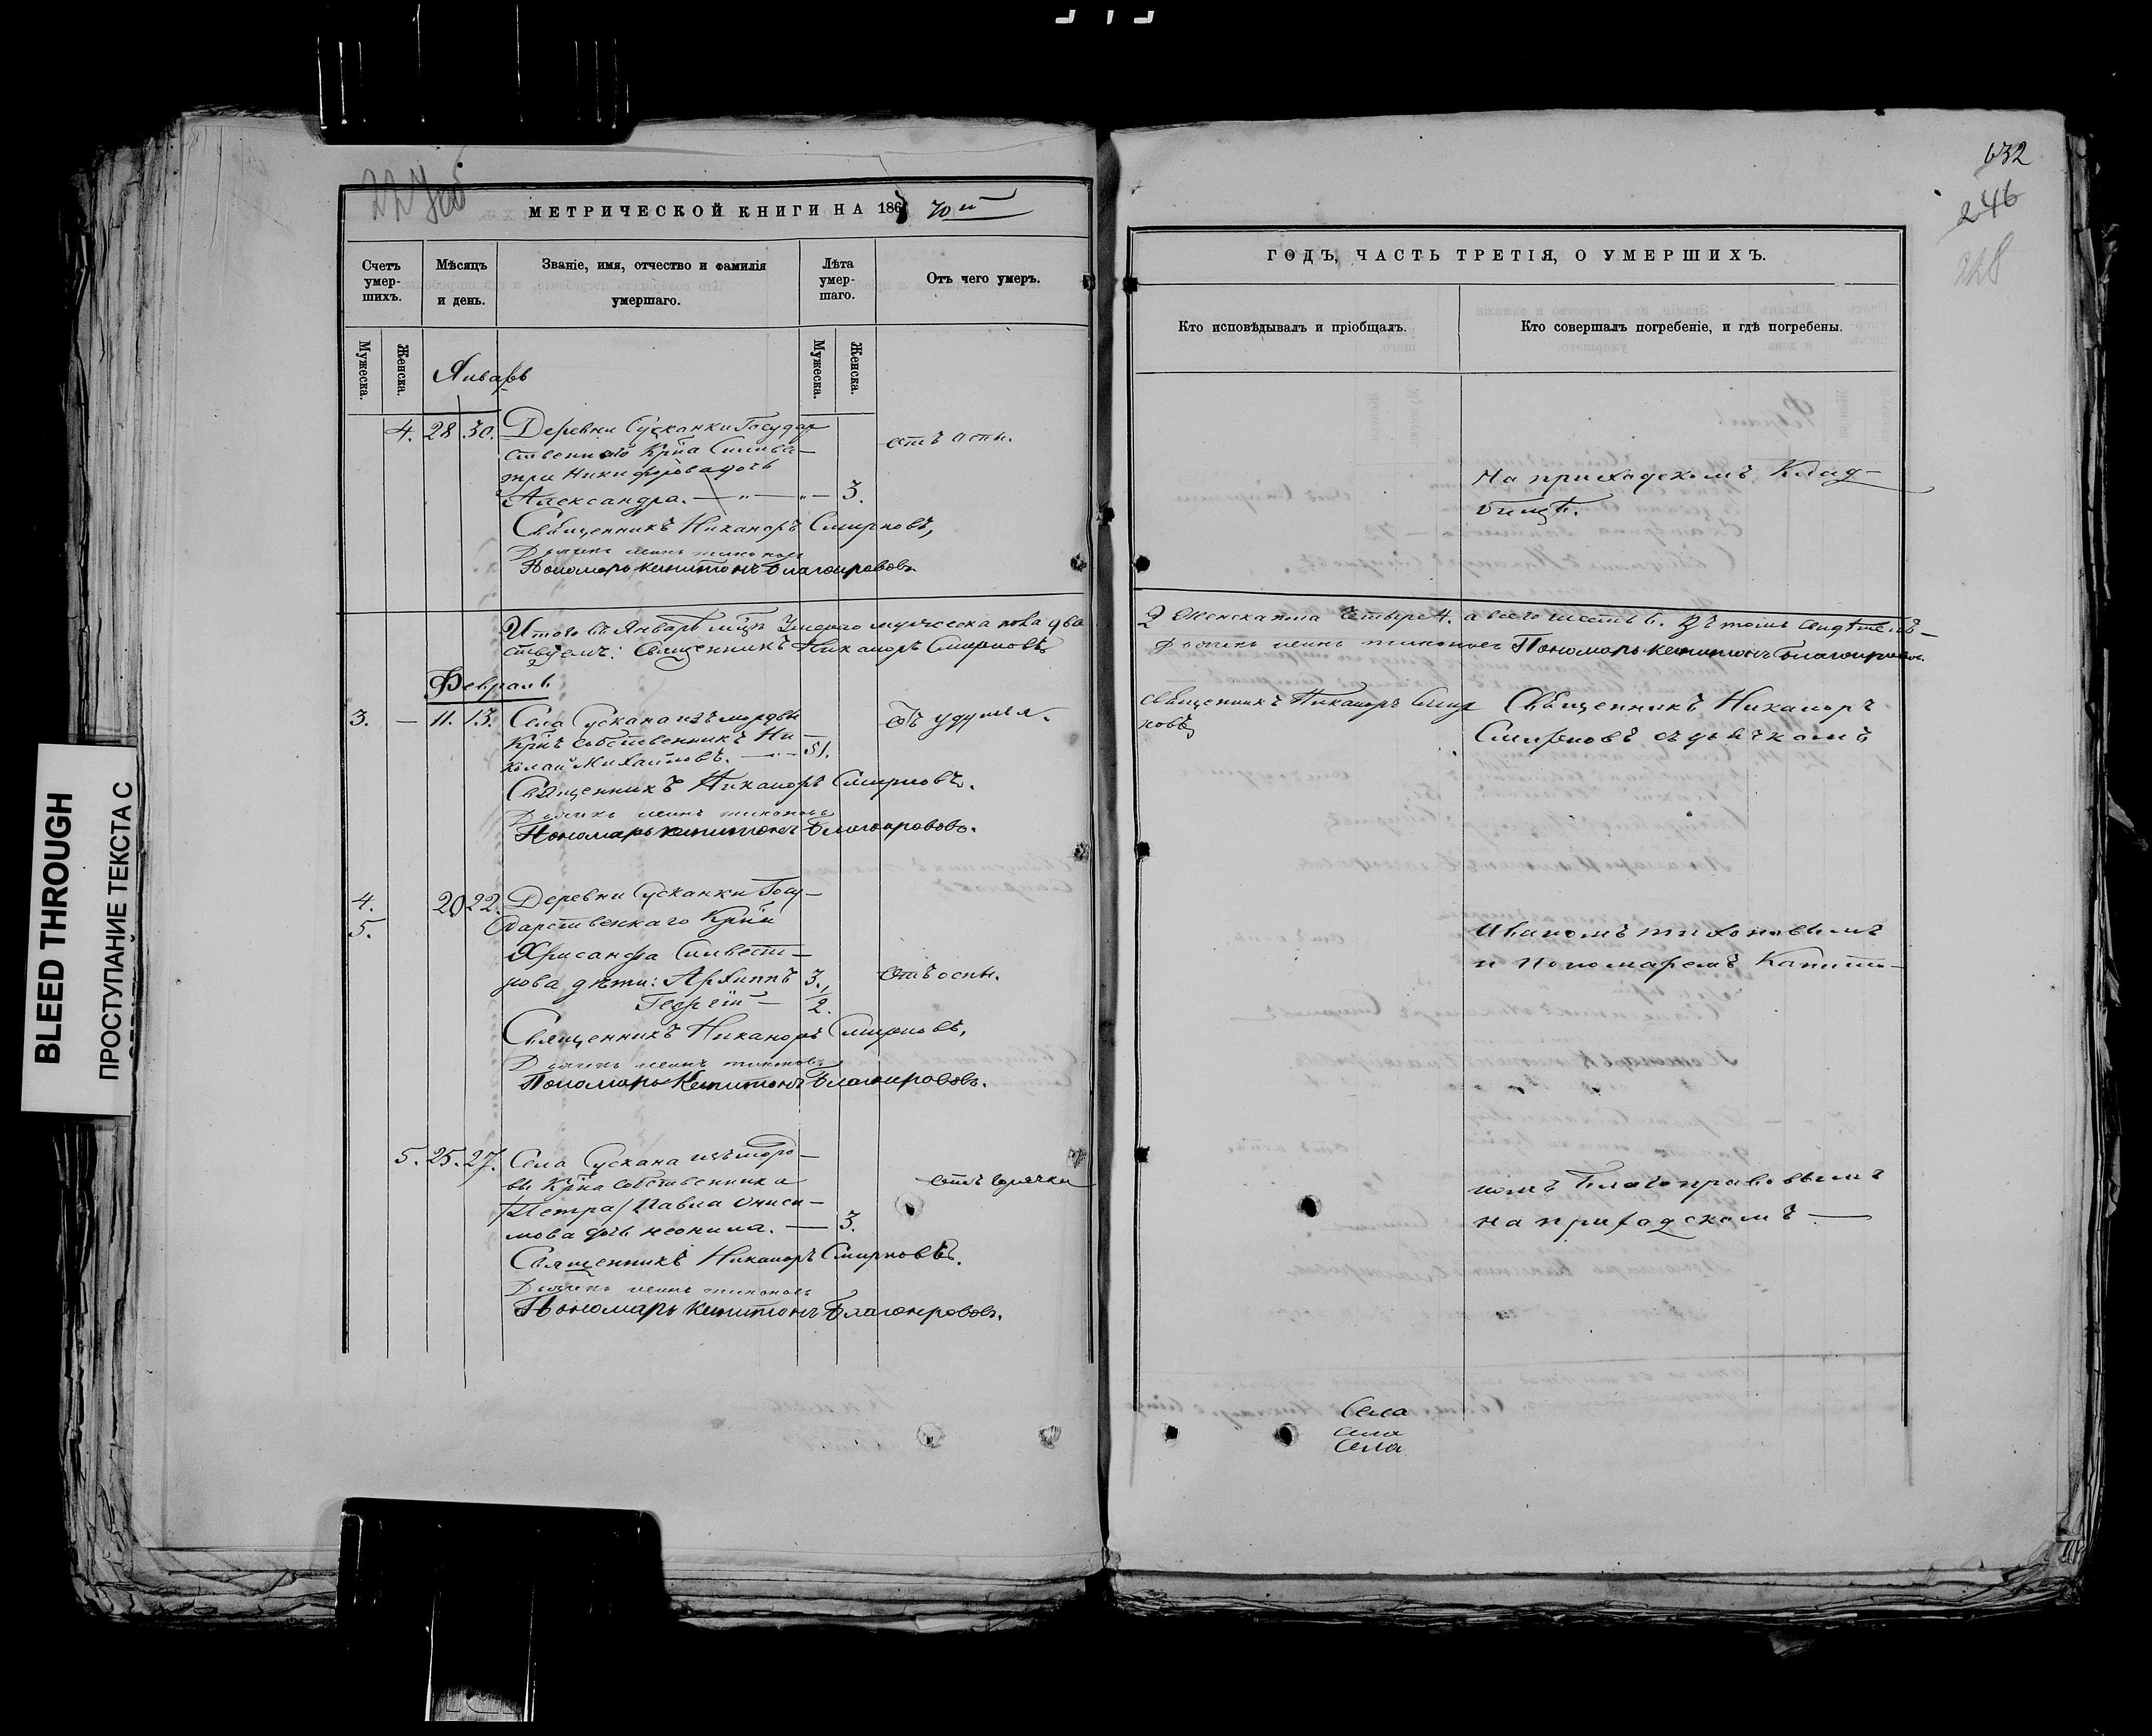 632
246
МЕТРИЧЕСКОЙ КНИГИ НА 186 70й
Счетъ умерших.
Мѣсяцъ и день.
Званіе, имя, отчество и фамилія умершаго.
Лѣта умершаго.
Отъ чего умеръ.
Мужеска.
Женска.
Мужеска.
Женска.
Январь
4. 28. 30. Деревни Сусканки Государ
ственнаго Крн҃а Силива
тра Никифорова дочь
Александра. — „ — „ — 3.
отъ оспы.
Священникъ Никаноръ Смирновъ,
Пономарь Капитонъ Благонравовъ.
Итого въ Январѣ мц҃ѣ Умерло мужеска пола два
ствуемъ: Священникъ Никаноръ Смирновъ
Февраль
3. — 11. 13. Села Сускана изъ мордвы
Крн҃ъ собственникъ Ни
колай Михайловъ. — 51.
отъ удушья.
Священникъ Никаноръ Смирновъ.
Пономарь Капитонъ Благонравовъ.
4. 20 22. Деревни Сусканки Госу
5. дарственнаго Крн҃а
Хрисанфа Силвест
рова дѣти: Архиппъ 3.
Георгій — 1/2.
Отъ оспы.
Священникъ Никаноръ Смирновъ,
Пономарь Капитонъ Благонравовъ.
5. 25. 27. Села Сускана изъ морд
вы Крн҃а собственника
/Петра/ Павла Ониси
мова дочь Неонила. — 3.
отъ горячки
Священникъ Никаноръ Смирновъ.
Пономарь Капитонъ Благонравовъ.
ГОДЪ, ЧАСТЬ ТРЕТІЯ, О УМЕРШИХЪ.
Кто исповѣдывалъ и пріобщалъ.
Кто совершалъ погребеніе, и гдѣ погребены.
На приходскомъ Клад
бищѣ.
2 Женска пола четыре 4. а всего шесть 6. Въ томъ свидѣтель
Пономарь Капитонъ Благонравовъ.
Священникъ Никаноръ Смир
новъ
Священникъ Никаноръ
Смирновъ съ дьячкомъ
Иваномъ Тихоновымъ
и Пономаремъ Капито
номъ Благонравовымъ
на приходскомъ —
Села
Села
Села
BLEED THROUGH
ПРОСТУПАНИЕ ТЕКСТА С